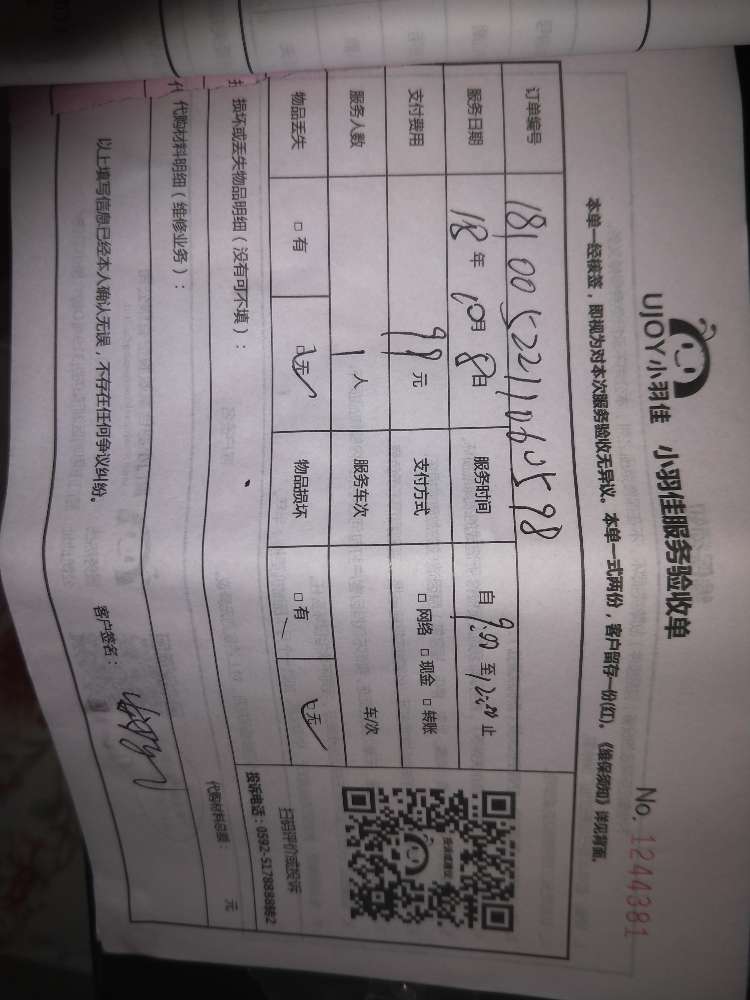 UJOY小羽佳 小羽佳服务验收单
No. 1244381
本单一经核签，即视为对本次服务验收无异议。本单一式两份，客户留存一份(红)。《维保须知》详见背面。
订单编号 181005221106 598
服务日期 18年10月8日 服务时间 自9:00至12:00止
支付费用 99元 支付方式 □ 网络 □ 现金 □ 转账
服务人数 1人 服务车次 车/次
物品丢失 □ 有 □ 无 ✓ 物品损坏 □ 有 □ 无 ✓
损坏或丢失物品明细（没有可不填）：
扫码评价或投诉
投诉电话：0592-5178888转2
代购材料明细（维修业务）：
代购材料总额： 元
以上填写信息已经本人确认无误，不存在任何争议纠纷。 客户签名：